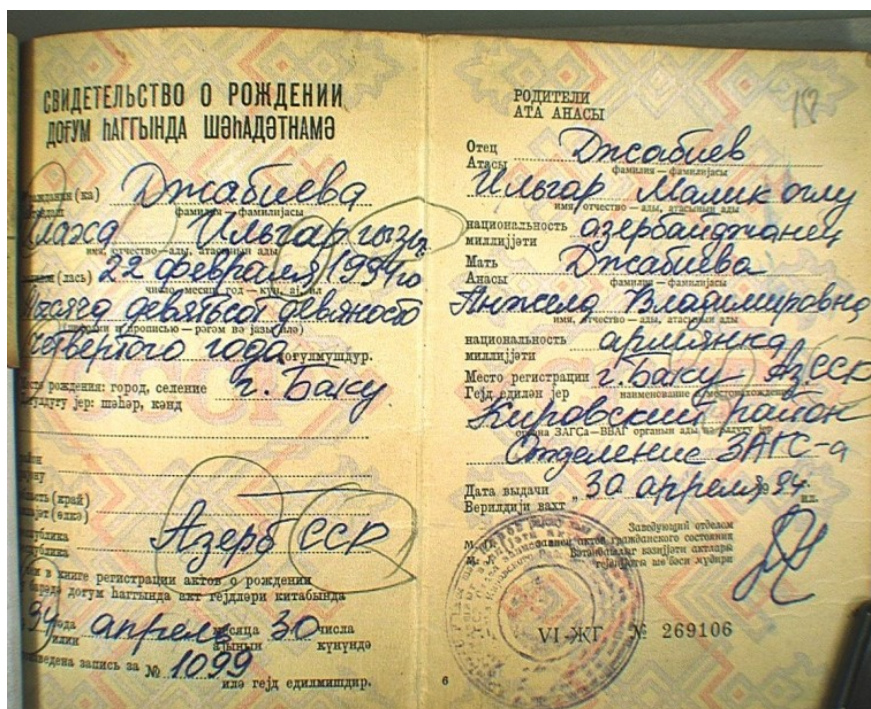 СВИДЕТЕЛЬСТВО О РОЖДЕНИИ
ДОҒУМ ҺАГГЫНДА ШӘҺАДӘТНАМӘ
(ка) Джабиева
фамилия — фамилијасы
Ильгар гызы
имя, отчество — ады, атасынын ады
(лась) 22 февраля 1994го
число, месяц, год — күн, ај, ил
тысяча девятьсот девяносто
и прописью — рәгәм вә јазы илә)
четвертого года доғулмушдур.
Место рождения: город, селение г. Баку
јер: шәһәр, кәнд
(край)
(өлкә)
Азерб ССР
в книге регистрации актов о рождении
доғум һаггында акт гејдләри китабында
94 года апрель месяца 30 числа
илин ајынын күнүндә
запись за № 1099
илә гејд едилмишдир.
РОДИТЕЛИ
АТА АНАСЫ
Отец Джабиев
Атасы фамилия — фамилијасы
Ильгар Малик оглы
имя, отчество — ады, атасынын ады
национальность азербайджанец
милліјјәти
Мать Джабиева
Анасы фамилия — фамилијасы
Анжела Владимировна
имя, отчество — ады, атасынын ады
национальность армянка
милліјјәти
Место регистрации г. Баку Аз.ССР
Гејд едилән јер наименование и местонахождение
Кировский район
органа ЗАГСа—ВВАГ органын ады вә јер
Отделение ЗАГС-а
Дата выдачи „30 апреля 1994г.
Верилдији вахт ил.
Заведующий отделом
записи актов гражданского состояния
Вәтәндашлыг вәзијјәти актлары
гејдијаты шө'бәси мүдири
VI-ЖГ № 269106
6